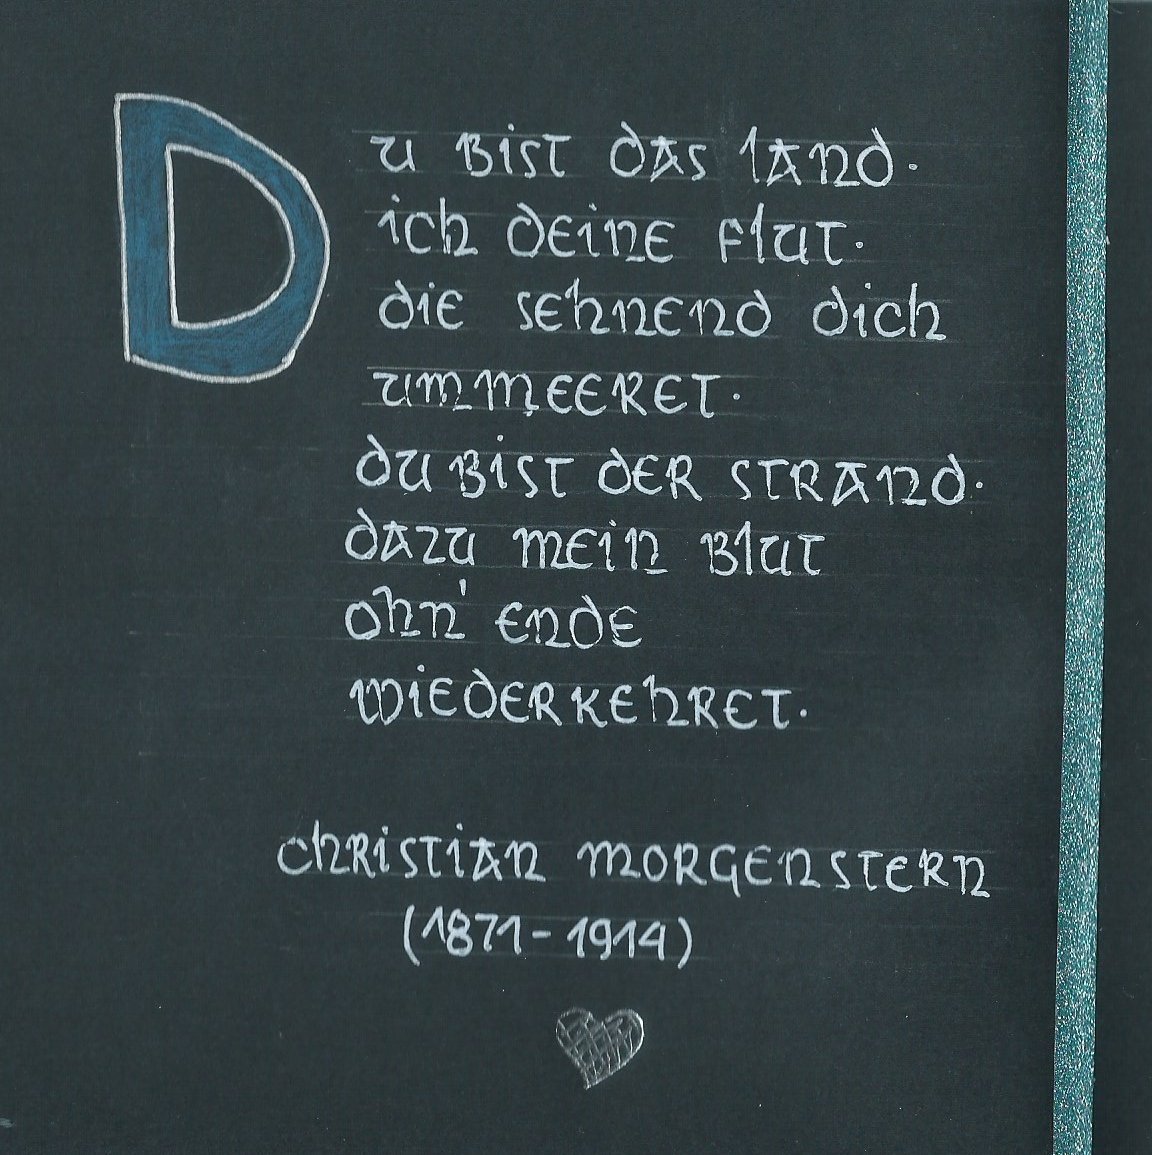 Du bist das land.
ich deine flut.
die sehnend dich
ummeeret.
du bist der strand.
dazu mein blut
ohn' ende
wiederkehret.
christian morgenstern
(1871-1914)